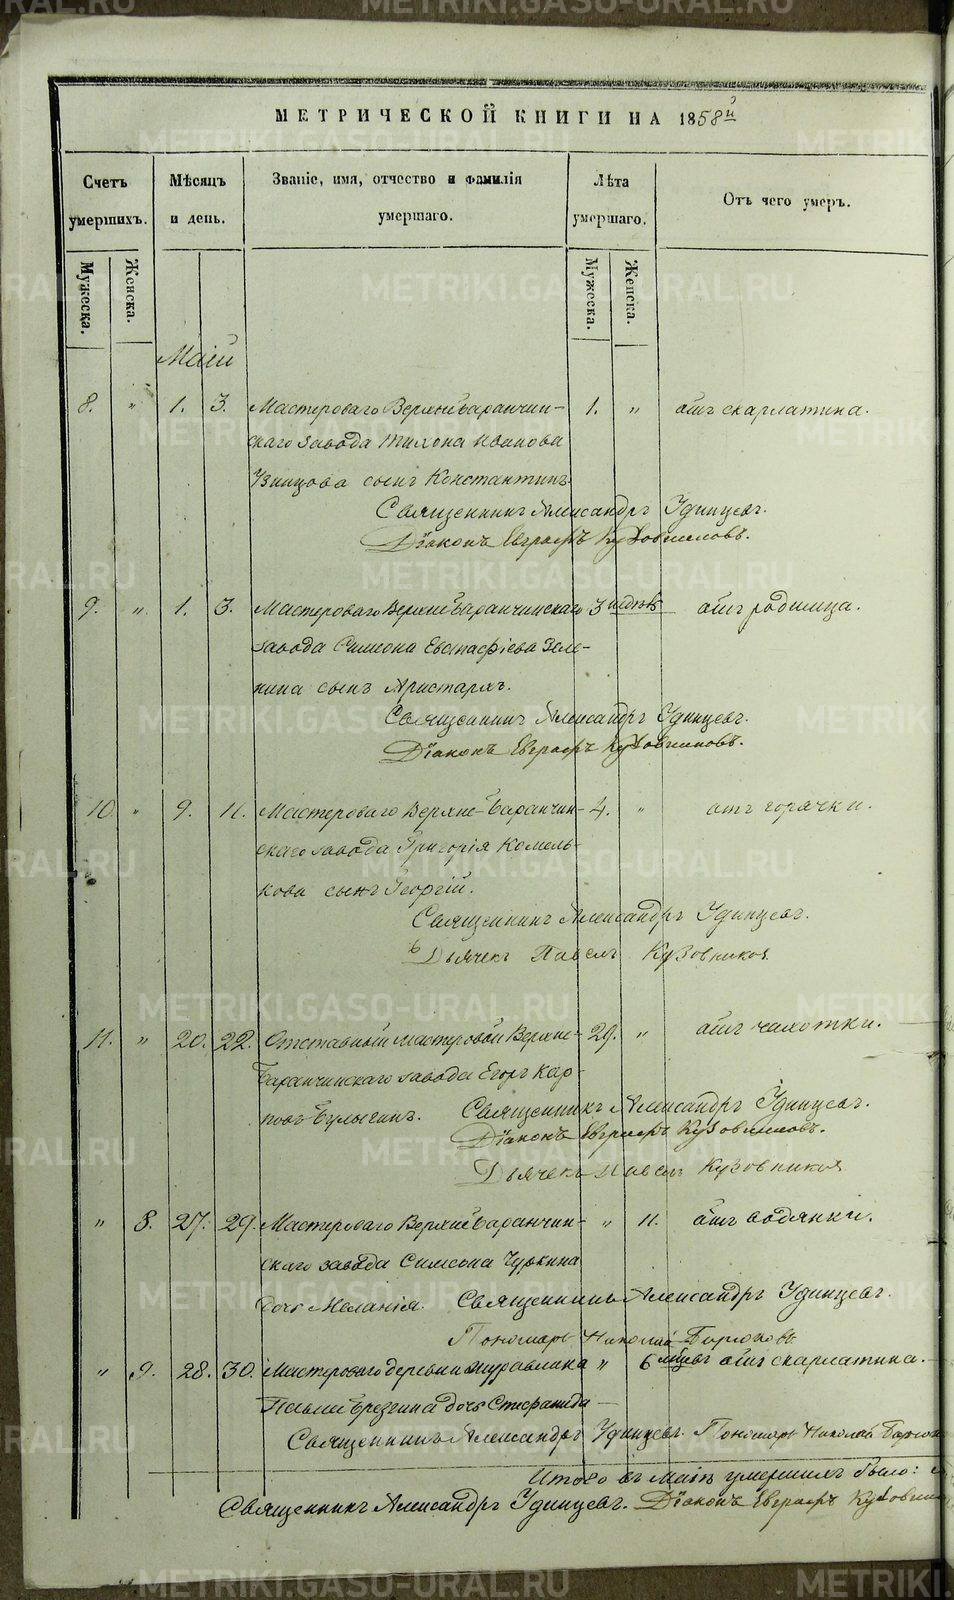 МЕТРИЧЕСКОЙ КНИГИ НА 1858й
Счетъ умершихъ.
Мѣсяцъ и день.
Званіе, имя, отчество и фамилія умершаго.
Лѣта умершаго.
Отъ чего умеръ.
Мужеска.
Женска.
Мужеска.
Женска.
Маій
8. " 1. 3. Мастероваго Верхнебаранчин- 1. " отъ скарлатина.
скаго завода Тихона Иванова
сынъ Константинъ
Священникъ Александръ Удинцевъ.
Діаконъ Евграфъ Кузовниковъ.
9. " 1. 3. Мастероваго Верхнебаранчинскаго 3 недѣль отъ родимца.
завода Симеона Евстафіева Зеле-
нина сынъ Аристархъ.
Священникъ Александръ Удинцевъ.
Діаконъ Евграфъ Кузовниковъ.
10. " 9. 11. Мастероваго Верхне-Баранчин- 4. " отъ горячки.
скаго завода Григорія Комель-
кова сынъ Георгій.
Священникъ Александръ Удинцевъ.
Дьячекъ Павелъ Кузовников
11. " 20. 22. Отставный мастеровой Верхне- 29. " отъ чахотки.
Баранчинскаго завода Егоръ Кар-
повъ Булыгинъ.
Священникъ Александръ Удинцевъ.
Діаконъ Евграфъ Кузовниковъ.
Дьячекъ Павелъ Кузовников
" 8. 27. 29. Мастероваго Верхнебаранчин- " 11. отъ водянки.
скаго завода Симеона Чуркина
дочь Меланія.
Священникъ Александръ Удинцевъ.
Пономарь Николай
" 9. 28. 30. Мастероваго деревни " 6 мѣсяц. отъ скарлатина.
дочь Стефанида
Священникъ Александръ Удинцевъ. Пономарь Николай
Итого въ Маѣ умершихъ было:
Священникъ Александръ Удинцевъ. Діаконъ Евграфъ
METRIKI.GASO-URAL.RU